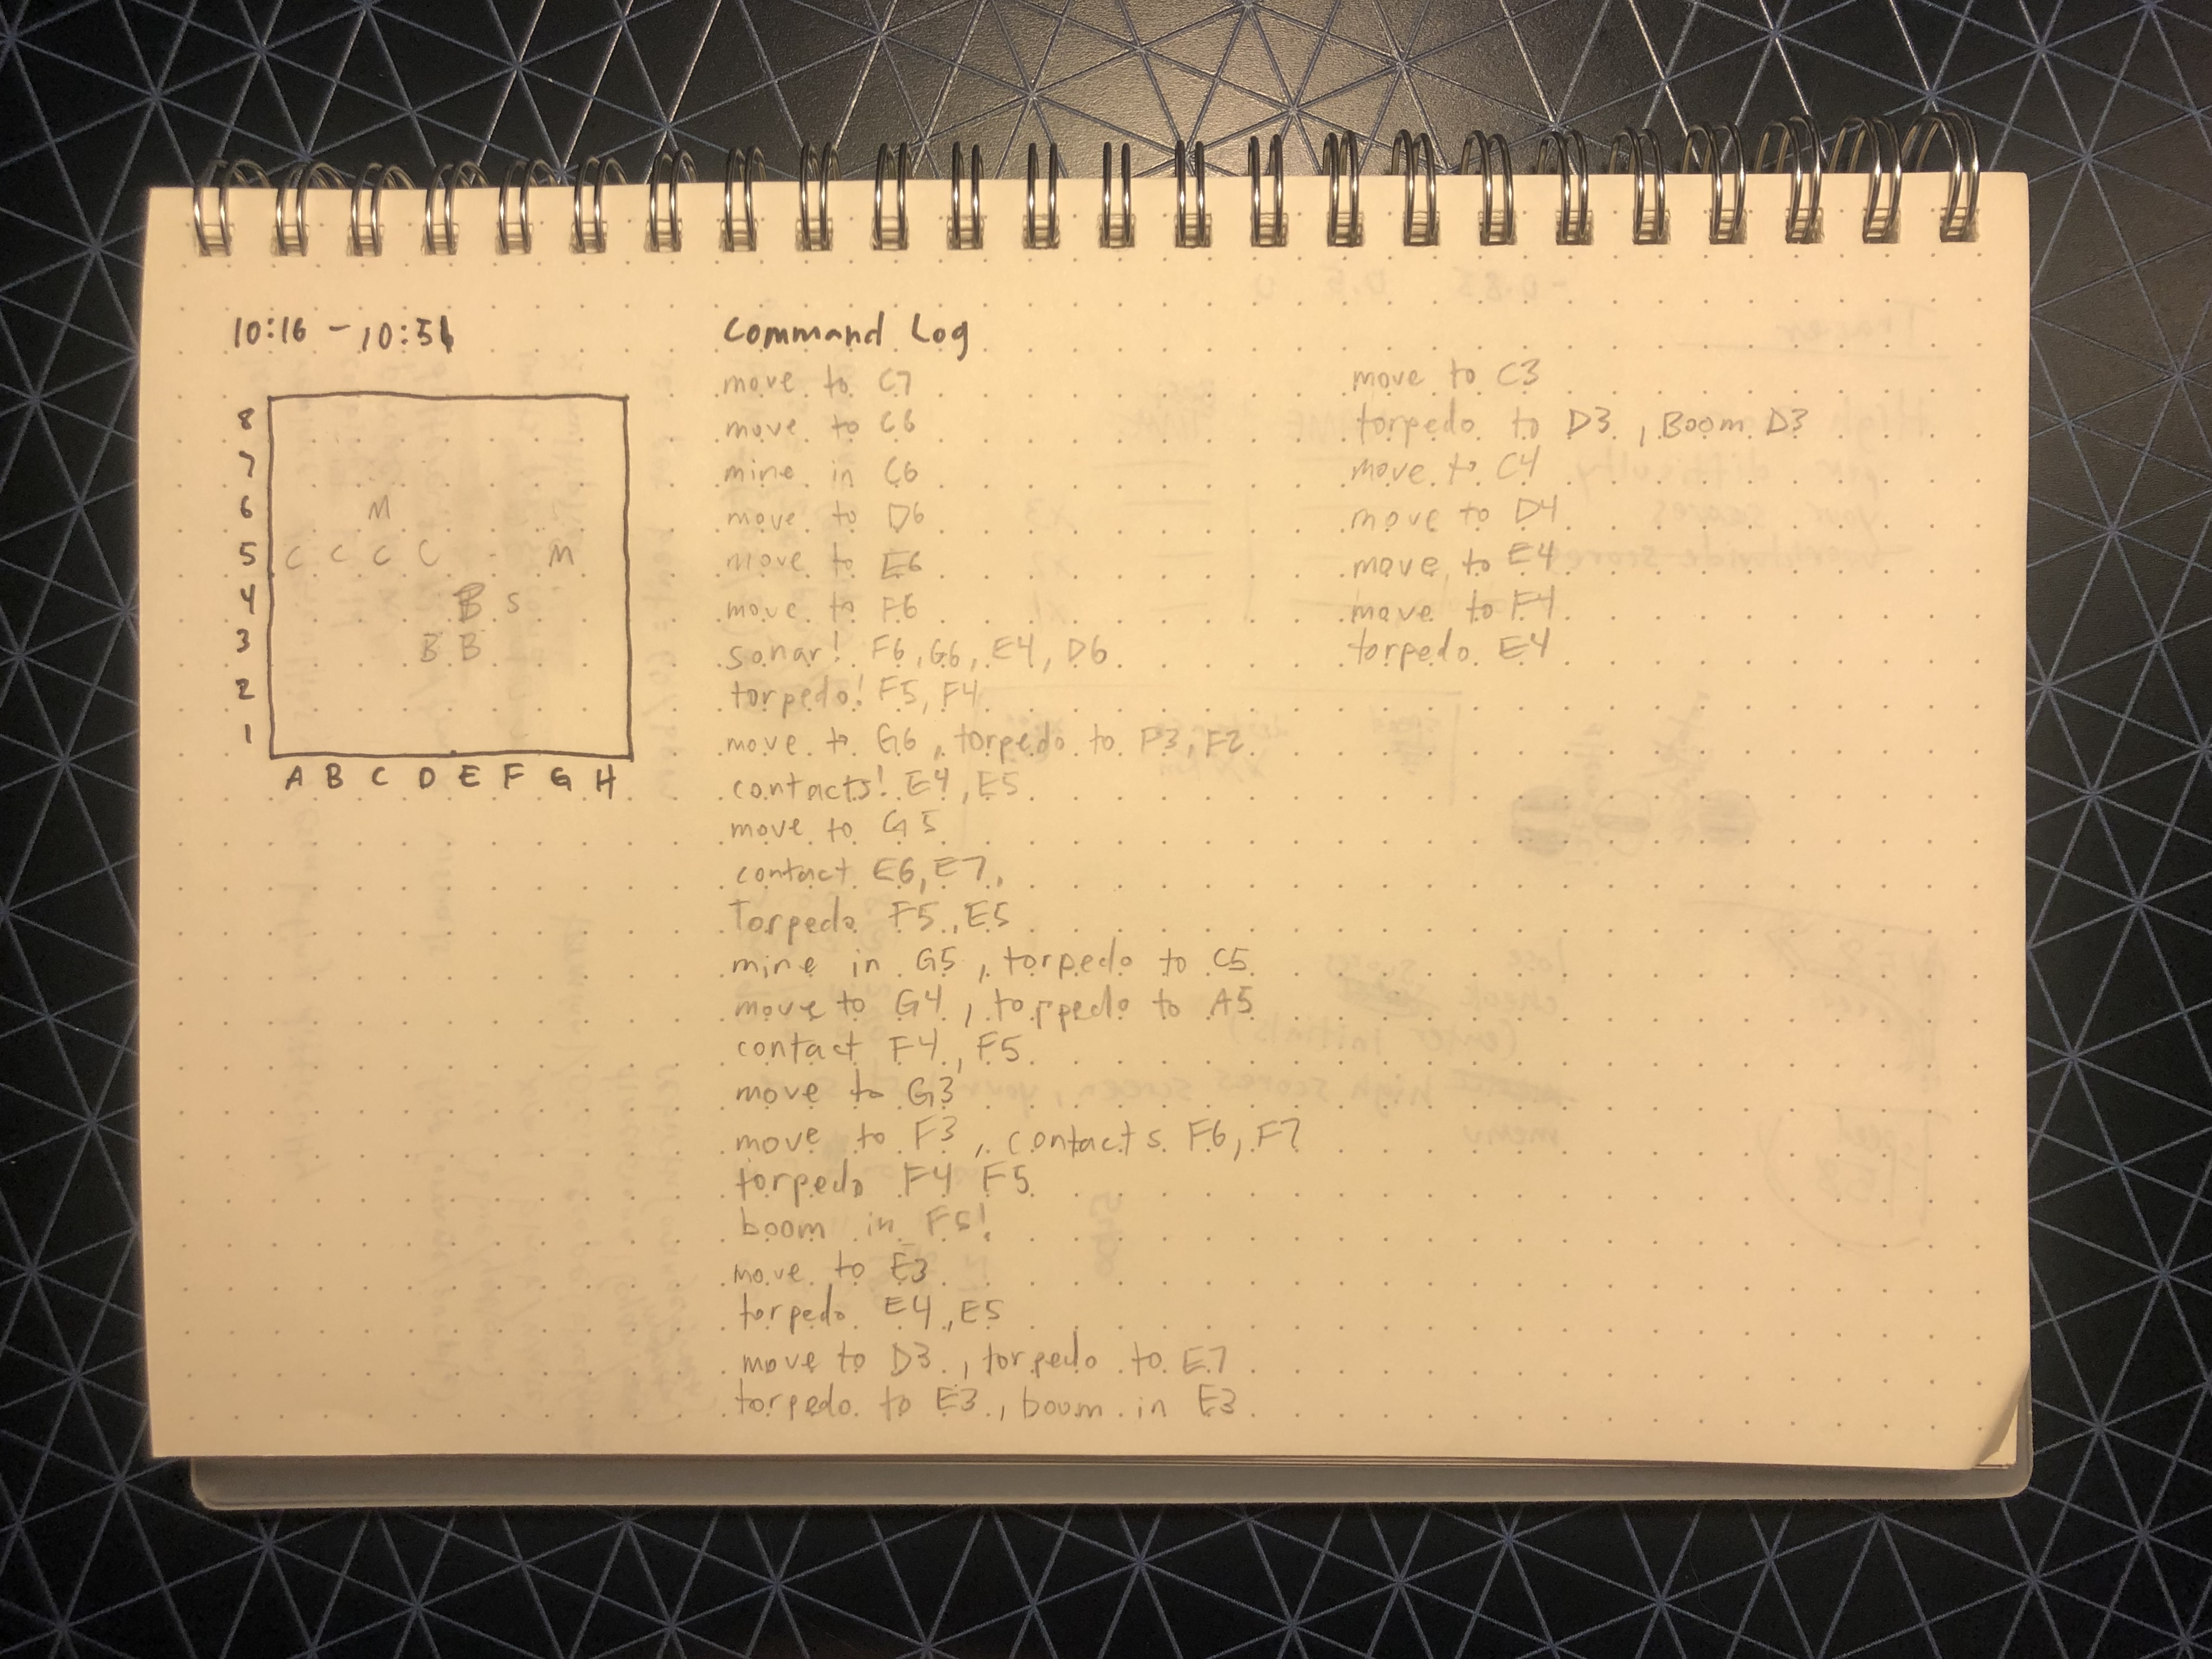 10:16 - 10:51
8
7
6 M
5 C C C C - M
4 B S
3 B B
2
1
A B C D E F G H
Command Log
move to C7
move to C6
mine in C6
move to D6
move to E6
move to F6
sonar! F6, G6, E4, D6
torpedo! F5, F4
move to G6, torpedo to F3, F2
contacts! E4, E5
move to G5
contact E6, E7,
Torpedo F5, E5
mine in G5, torpedo to C5
move to G4, torpedo to A5
contact F4, F5
move to G3
move to F3, contacts F6, F7
torpedo F4 F5
boom in F5!
move to E3
torpedo E4, E5
move to D3, torpedo to E7
torpedo to E3, boom in E3
move to C3
torpedo to D3, Boom D3
move to C4
move to D4
move to E4
move to F4
torpedo E4